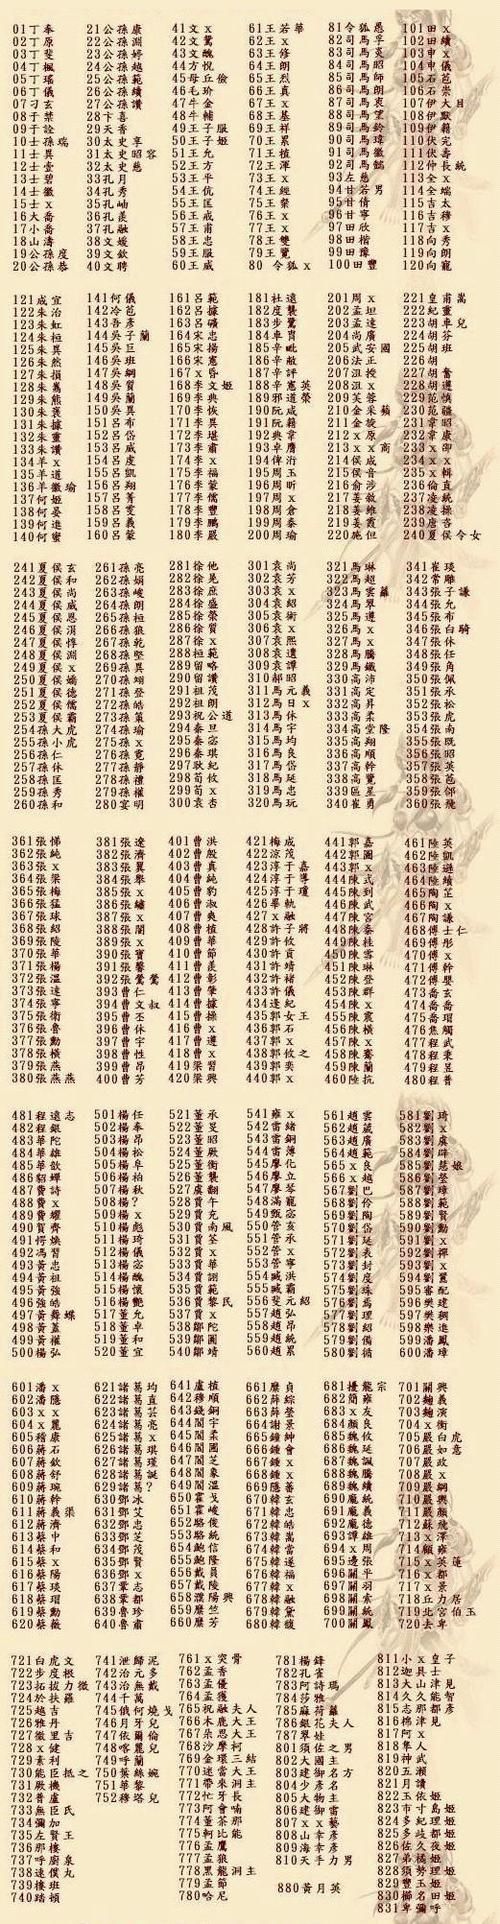 01丁奉
02丁原
03丁斐
04丁楓
05丁瑤
06丁儀
07刁玄
08于禁
09于詮
10士孫瑞
11士異
12士壹
13士碧
14士徽
15士x
16大喬
17小喬
18山濤
19公孫度
20公孫恭
21公孫康
22公孫淵
23公孫婷
24公孫越
25公孫範
26公孫續
27公孫瓚
28卞喜
29天香
30太史享
31太史昭容
32太史慈
33孔月
34孔秀
35孔岫
36孔羨
37孔融
38文媛
39文欽
40文聘
41文x
42文鴦
43文醜
44方悅
45毋丘儉
46毛玠
47牛金
48牛輔
49王子服
50王子姬
51王允
52王方
53王平
54王伉
55王匡
56王戎
57王甫
58王忠
59王朗
60王威
61王若華
62王x
63王x
64王朗
65王烈
66王真
67王x
68王基
69王祥
70王累
71王植
72王渾
73王x
74王經
75王粲
76王x
77王x
78王雙
79王覽
80 令狐x
81令狐愚
82司馬孚
83司馬炎
84司馬昭
85司馬師
86司馬朗
87司馬衷
88司馬望
89司馬鈴
90司馬瑋
91司馬徽
92司馬懿
93左慈
94甘若男
95甘倩
96甘寧
97田欣
98田楷
99田豫
100田豐
101田x
102田續
103申x
104申儀
105石苞
106石崇
107伊大目
108伊默
109伊籍
110伏完
111伏壽
112仲長統
113全x
114全端
115吉太
116吉穆
117吉x
118向秀
119向朗
120向寵
121成宜
122朱治
123朱虹
124朱桓
125朱異
126朱然
127朱損
128朱雋
129朱熊
130朱褒
131朱據
132朱靈
133朱讚
134羊x
135羊道
136羊徽瑜
137何姬
138何晏
139何進
140何蜜
141何儀
142冷苞
143吾彥
144吳子蘭
145吳巨
146吳班
147吳綱
148吳質
149吳蘭
150吳異
151呂布
152呂岱
153呂威
154呂虔
155呂凱
156呂翔
157呂菁
158呂雯
159呂義
160呂蒙
161呂範
162呂據
163呂曠
164宋忠
165宋揚
166宋憲
167x昏
168李文姬
169李典
170李恢
171李異
172李堪
173李肅
174李x
175李福
176李蒙
177李儒
178李豐
179李鵬
180李嚴
181杜遠
182度襲
183步騭
184車胄
185辛毗
186辛敞
187辛評
188辛憲英
189邢道榮
190阮咸
191阮籍
192典韋
193卓膺
194俾衍
195周玉
196周昕
197周x
198周倉
199周泰
200周瑜
201周x
202孟坦
203孟達
204尚廣
205武安國
206法正
207沮授
208沮x
209芙蓉
210金采蘋
211金旋
212x原
213x x商
214侯成
215侯音
216俞涉
217姜敘
218姜維
219姜霞
220施但
221皇甫嵩
222紀靈
223胡車兒
224胡芬
225胡班
226胡
227胡奮
228胡遵
229范慎
230范疆
231韋昭
232韋康
233x邵
234x x
235x輯
236倫直
237凌統
238凌操
239唐咨
240夏侯令女
241夏侯玄
242夏侯和
243夏侯尚
244夏侯威
245夏侯恩
246夏侯涓
247夏侯惇
248夏侯淵
249夏侯x
250夏侯嬌
251夏侯德
252夏侯儒
253夏侯霸
254孫大虎
255孫小虎
256孫仁
257孫休
258孫匡
259孫秀
260孫和
261孫亮
262孫娟
263孫峻
264孫朗
265孫桓
266孫狼
267孫乾
268孫堅
269孫異
270孫翊
271孫登
272孫皓
273孫策
274孫瑜
275孫x
276孫霓
277孫靜
278孫禮
279孫權
280宴明
281徐他
282徐晃
283徐x
284徐庶
285徐榮
286徐質
287徐x
288桓範
289留略
290留讚
291祖茂
292祖朗
293祝公道
294秦旦
295秦宓
296秦琪
297耿紀
298荀攸
299荀x
300袁杏
301袁尚
302袁芳
303袁x
304袁紹
305袁術
306袁x
307袁熙
308袁遺
309袁譚
310郝昭
311馬元義
312馬日x
313馬休
314馬宇
315馬均
316馬良
317馬忠
318馬延
319馬岱
320馬玩
321馬琳
322馬超
323馬雲蘿
324馬翠
325馬遵
326馬x
327馬x
328馬騰
329馬鐵
330高沛
331高定
332高昇
333高柔
334高堂隆
335高翔
336高順
337高幹
338高覽
339區星
340崔勇
341崔琰
342常雕
343張子謙
344張允
345張布
346張白騎
347張休
348張任
349張角
350張佩
351張承
352張松
353張虎
354張南
355張既
356張昭
357張英
358張苞
359張郃
360張飛
361張悌
362張純
363張x
364張梁
365張梅
366張猛
367張球
368張紹
369張陵
370張華
371張楊
372張溫
373張達
374張寧
375張衛
376張魯
377張勳
378張橫
379張x
380張燕燕
381張遼
382張濟
383張翼
384張舉
385張x
386張繡
387張x
388張闓
389張x
390張寶
391張馨
392張鶯鶯
393曹仁
394曹文叔
395曹丕
396曹休
397曹宇
398曹性
399曹昂
400曹芳
401曹洪
402曹殷
403曹真
404曹純
405曹豹
406曹淑
407曹爽
408曹植
409曹華
410曹節
411曹羨
412曹彰
413曹肇
414曹據
415曹操
416曹x
417曹遵
418曹x
419梁習
420梁興
421梅成
422涼茂
423淳于嘉
424淳于導
425淳于瓊
426畢軌
427x融
428許子將
429許攸
430許貢
431許靖
432許褚
433許儀
434逢紀
435郭女王
436郭石
437郭x
438郭攸之
439郭奕
440郭x
441郭嘉
442郭圖
443郭x
444陳式
445陳到
446陳武
447陳宮
448陳泰
449陳桂
450陳雪
451陳琳
452陳登
453陳群
454陳x
455陳震
456陳橫
457陳x
458陳騫
459陳蘭
460陸抗
461陸英
462陸凱
463陸遜
464陸績
465陶芷
466陶x
467陶謙
468傅士仁
469傅彤
470傅x
471傅幹
472傅嬰
473喬玄
474喬喬
475喬瑁
476焦觸
477程武
478程秉
479程昱
480程普
481程遠志
482程銀
483華陀
484華雄
485華歆
486貂蟬
487費詩
488費x
489費耀
490賀齊
491愕煥
492馮習
493黃忠
494黃祖
495黃x
496強皓
497黃舞蝶
498黃蓋
499黃權
500楊弘
501楊任
502楊奉
503楊昂
504楊松
505楊阜
506楊柏
507楊秋
508楊?
509楊x
510楊彪
511楊琦
512楊儀
513楊宓
514楊醜
515楊懷
516楊艷
517董允
518董卓
519董和
520董宜
521董承
522董旻
523董昭
524董厥
525董衡
526董襲
527虞翻
528賈午
529賈充
530賈南風
531賈荃
532賈x
533賈華
534賈詡
535賈範
536賈黎民
537賈x
538鄒陀
539鄒圖
540鄒靖
541雍x
542雷緒
543雷銅
544雷薄
545廖化
546廖立
547廖琴
548滿寵
549甄宓
550管亥
551管承
552管x
553管寧
554臧洪
555臧霸
556斐元紹
557趙弘
558趙昂
559趙統
560趙累
561趙雲
562趙葳
563趙廣
564趙範
565x良
566x越
567劉巴
568劉伶
569劉陶
570劉岱
571劉延
572劉表
573劉封
574劉度
575劉珠
576劉焉
577劉理
578劉紹
579劉備
580劉循
581劉琦
582劉x
583劉虞
584劉辟
585劉慧娘
586劉瑩
587劉璋
588劉範
589劉賢
590劉勳
591劉x
592劉禪
593劉x
594劉鸞
595審配
596樊建
597樊稠
598樂進
599潘鳳
600潘璋
601潘x
602潘隱
603x x
604x麗
605稽康
606蔣石
607蔣欽
608蔣舒
609蔣琬
610蔣幹
611蔣義渠
612蔣濟
613蔡中
614蔡和
615蔡x
616蔡陽
617蔡琰
618蔡瑁
619蔡勳
620蔡薇
621諸葛均
622諸葛直
623諸葛芸
624諸葛亮
625諸葛x
626諸葛琪
627諸葛瑾
628諸葛誕
629諸葛?
630鄧冰
631鄧艾
632鄧忠
633鄧芝
634鄧茂
635鄧賢
636鄧x
637鞏志
638鞏都
639魯珍
640魯肅
641盧植
642穆順
643錢銅
644閻宇
645閻柔
646閻圃
647閻芝
648閻象
649閻溫
650霍弋
651霍峻
652駱俊
653駱統
654鮑信
655鮑隆
656戴員
657戴陵
658濮陽興
659糜竺
660糜芳
661糜貞
662薛綜
663薛瑩
664謝景
665鍾紳
666鍾會
667鍾x
668鍾x
669隱蕃
670韓玄
671韓忠
672韓皓
673韓當
674韓嵩
675韓遂
676韓福
677韓x
678韓融
679韓黛
680韓馥
681擾龍宗
682簡雍
683x友
684顏良
685魏攸
686魏延
687魏諷
688魏騰
689魏續
690龐統
691龐義
692龐德
693譚雄
694x周
695邊張
696關平
697關羽
698關索
699關統
700關鳳
701關興
702麴義
703麴演
704x衡
705嚴白虎
706嚴如意
707嚴政
708嚴x
709嚴綱
710嚴輿
711嚴顏
712蘇飛
713x澤
714顧雍
715x英蓮
716x x
717x景
718丘力居
719北宮伯玉
720去卑
721白虎文
722步度根
723拓拔力微
724於扶羅
725越吉
726雅丹
727徹里吉
728x健
729素利
730能臣抵之
731厥機
732普盧
733無臣氏
734彌加
735左賢王
736那樓
737呼廚泉
738速僕丸
739樓班
740踏頓
741泄歸泥
742治元多
743治無戴
744千萬
745俄何燒戈
746月牙兒
747依爾倫
748喀麗兒
749呼蘭
750葉絲婉
751華黎
752穆塔兒
761x突骨
762孟香
763孟優
764孟獲
765祝融夫人
766木鹿大王
767朵思大王
768沙摩柯
769金環三結
770迷當大王
771帶來洞主
772忙牙長
773阿會喃
774董荼那
775軻比能
776孟鳳
777孟狼
778黑龍洞主
779孟節
780哈尼
781楊鋒
782孔雀
783阿詩瑪
784莎雅
785麻荷蘿
786銀花夫人
787翠娃
801須佐之男
802大國主
803建御名方
804少彥名
805大物主
806建御雷
807x x藝
808山幸彥
809海幸彥
810天手力男
880黃月英
811小x皇子
812迦具士
813大山津見
814久久能智
815志那都彥
816棉津見
817阿x
818隼人
819神武
820五瀨
821月讀
822玉依姬
823市寸島姬
824多紀理姬
825多歧都姬
826佐久夜姬
827弟橘姬
828須勢理姬
829豐玉姬
830櫛名田姬
831卑彌呼